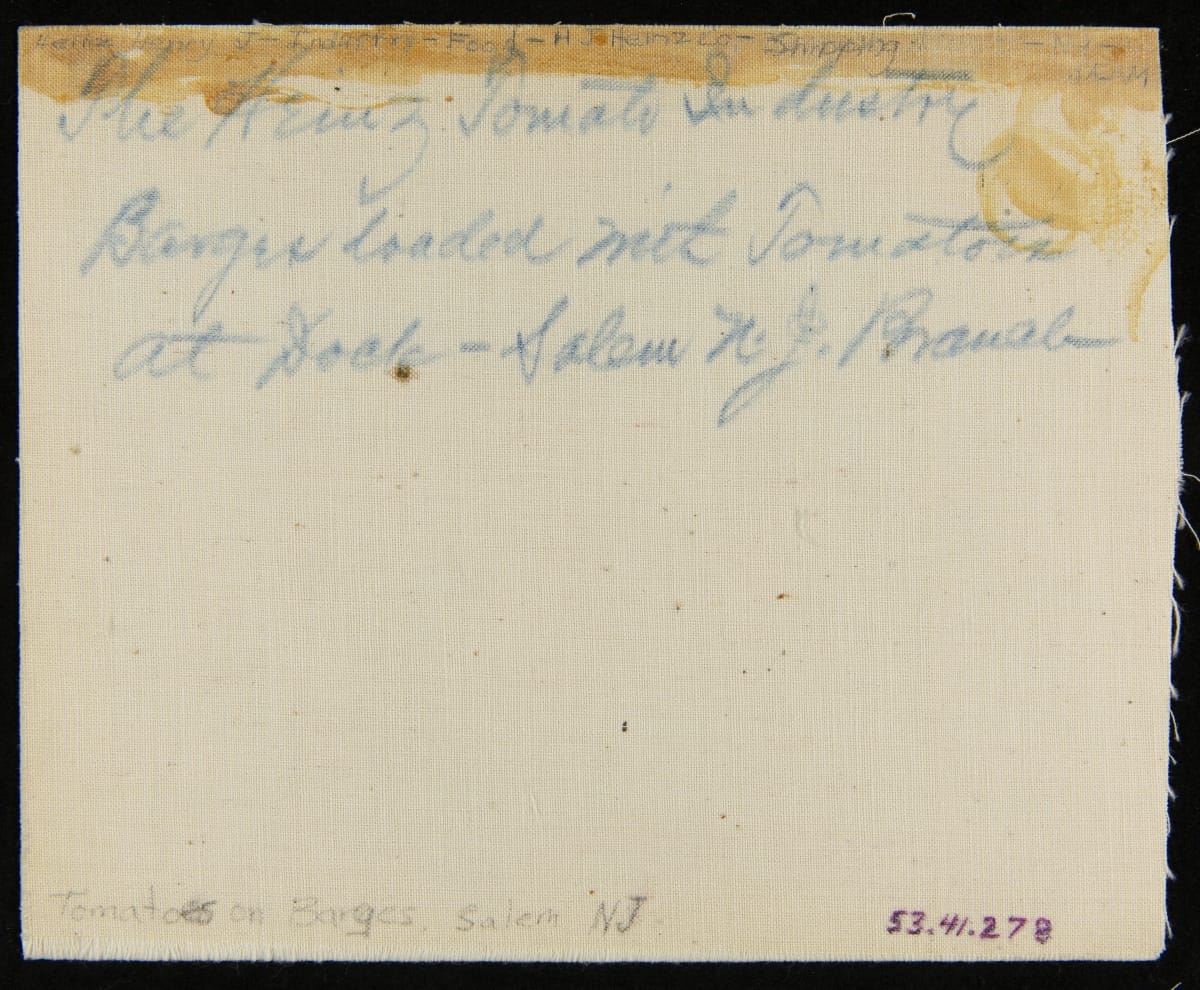 Heinz, Henry J - Industry - Food - H J Heinz Co - Shipping - NJ -
The Heinz Tomato Industry
Barges loaded with Tomatoes
at Dock - Salem N. J. Branch
Tomatoes on Barges, Salem NJ
53.41.278